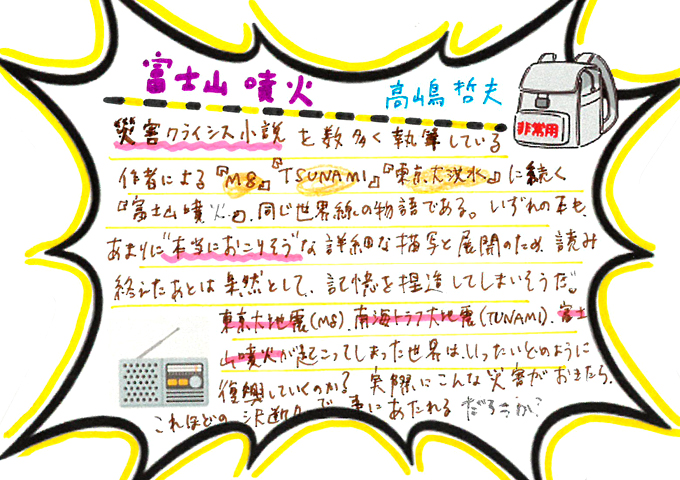 富士山噴火
高嶋哲夫
非常用
災害クライシス小説を数多く執筆している
作者による『M8』『TSUNAMI』『東京大洪水』に続く
『富士山噴火』も、同じ世界線の物語である。いずれの本も、
あまりに"本当におこりそう"な詳細な描写と展開のため、読み
終えたあとは呆然として、記憶を捏造してしまいそうだ。
東京大地震(M8)、南海トラフ大地震(TUNAMI)、富士
山噴火が起こってしまった世界は、いったいどのように
復興していくのかる 実際にこんな災害がおきたら、
これほどの決断力で事にあたれる だろうか?